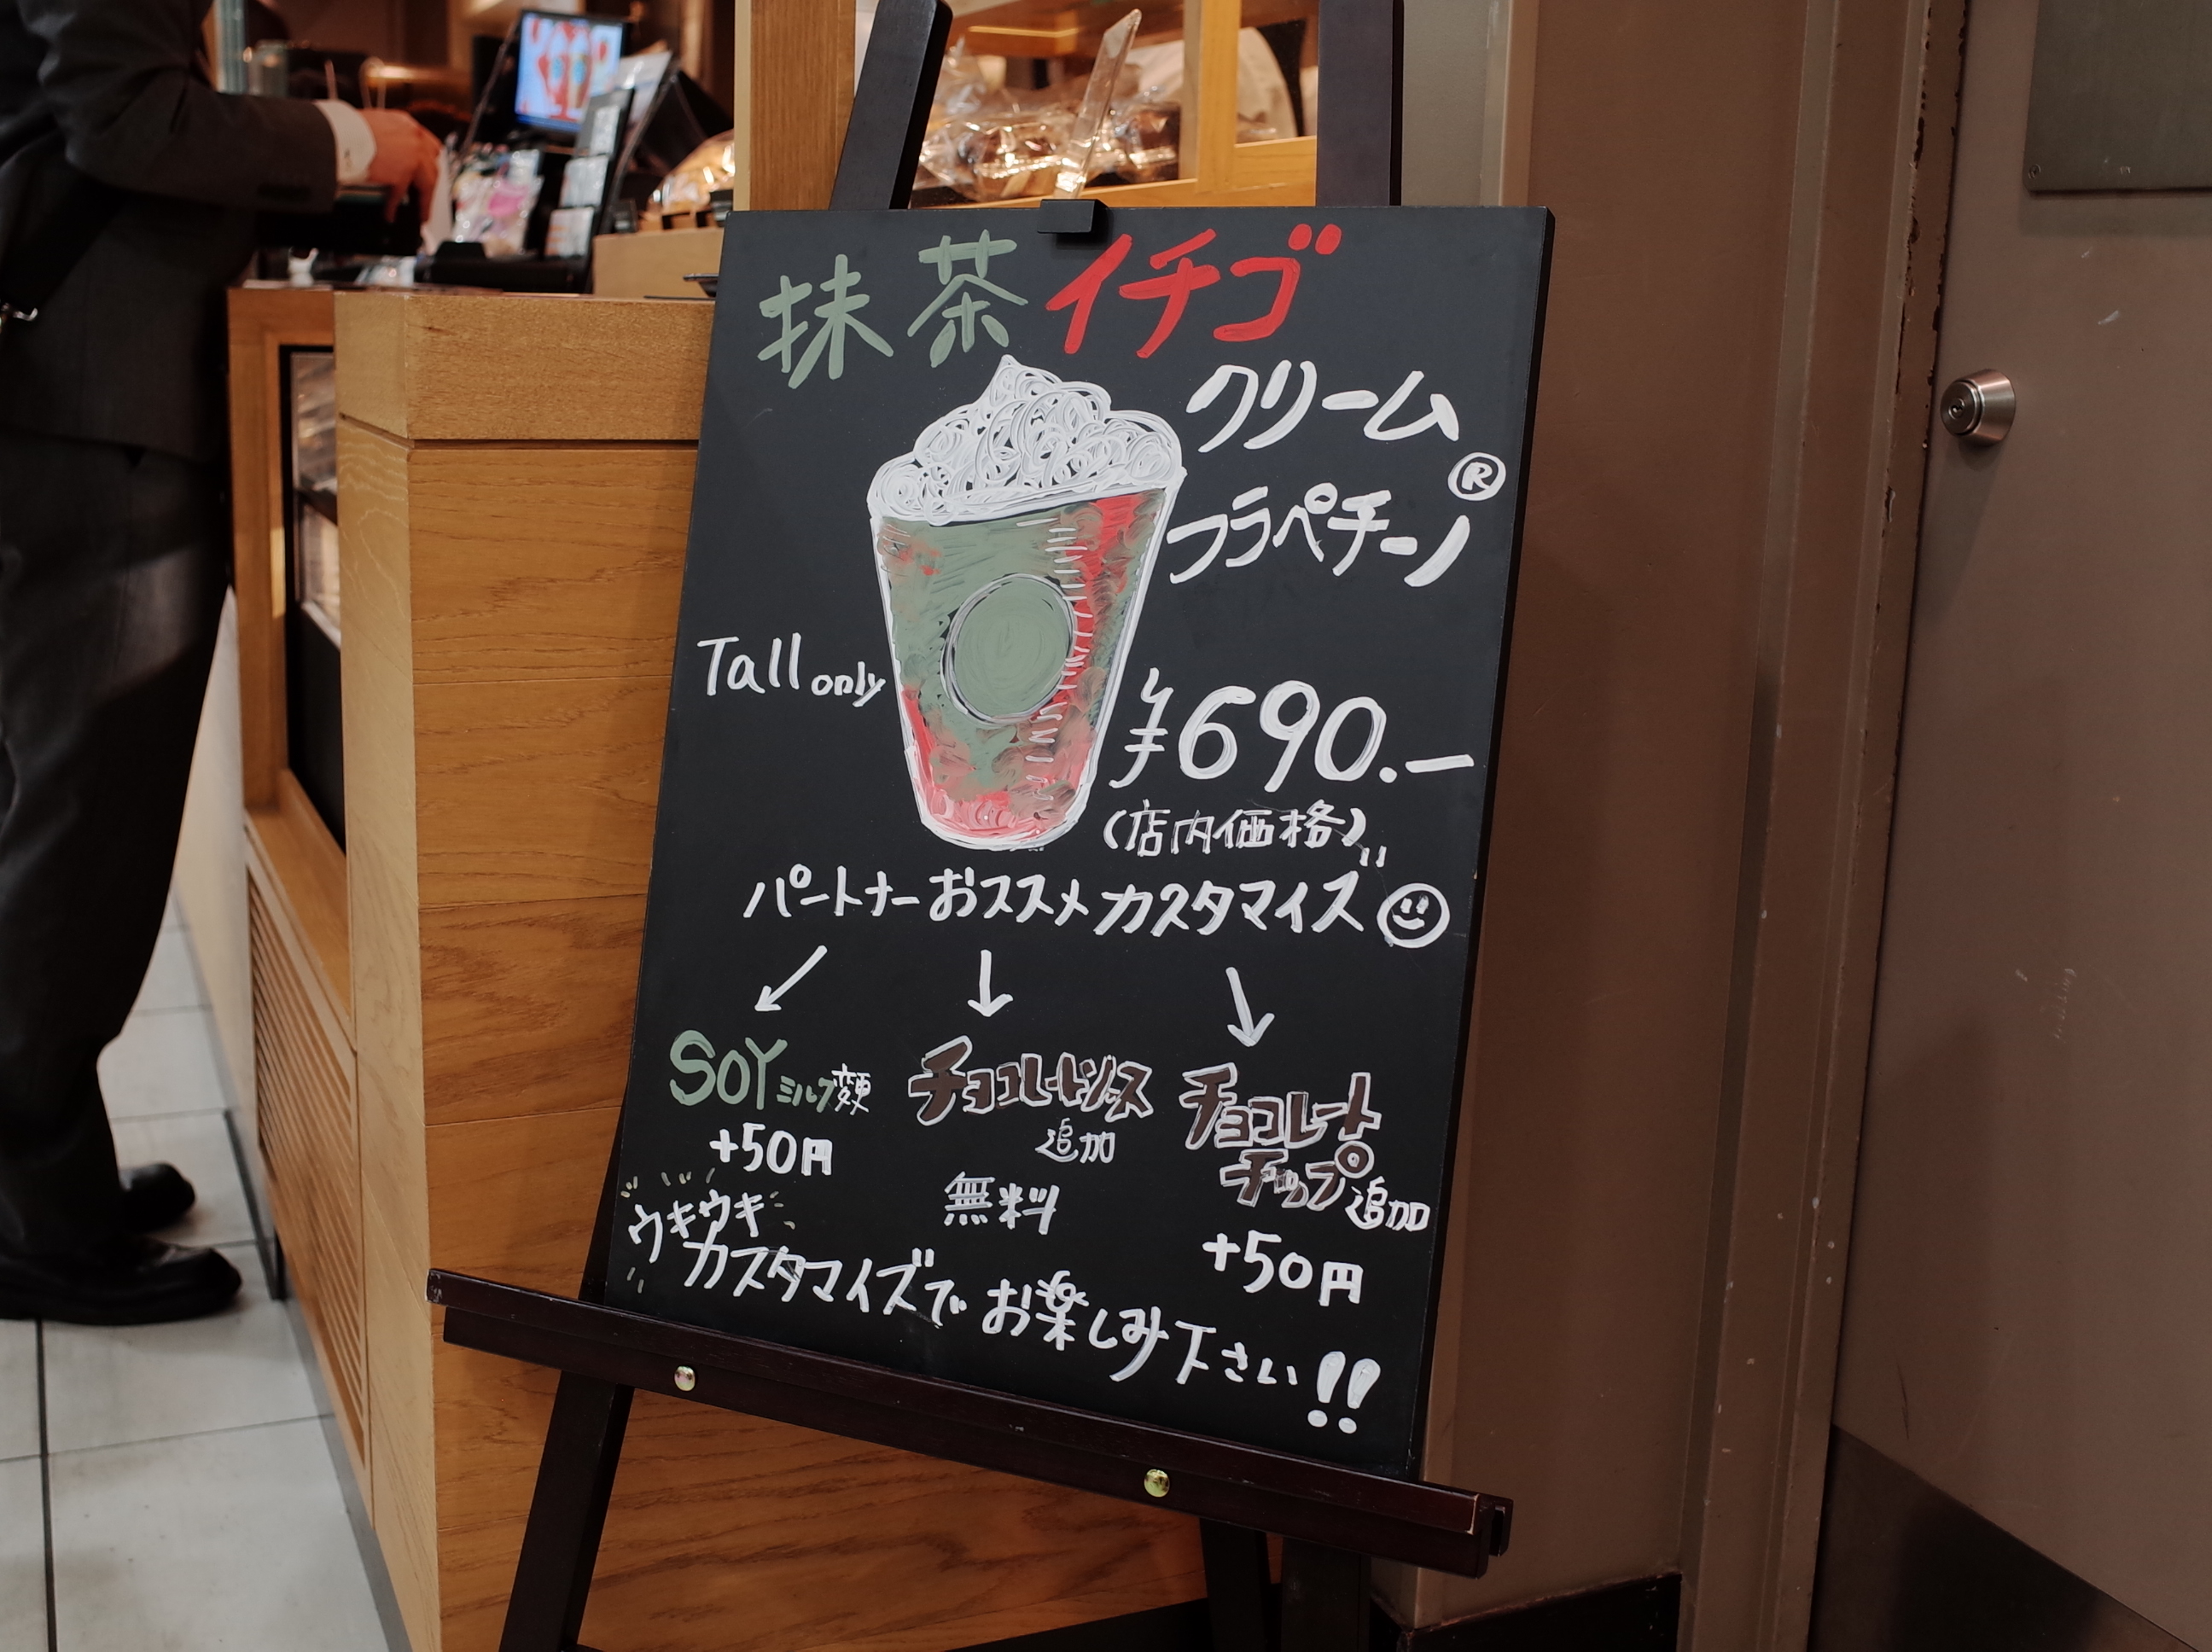 抹茶イチゴ
クリーム
フラペチーノ®
Tall only
¥690.-
(店内価格)
パートナーおススメカスタマイズ
SOYミルク変更
+50円
チョコレートソース
追加
無料
チョコレート
チップ追加
+50円
ウキウキ
カスタマイズでお楽しみ下さい!!